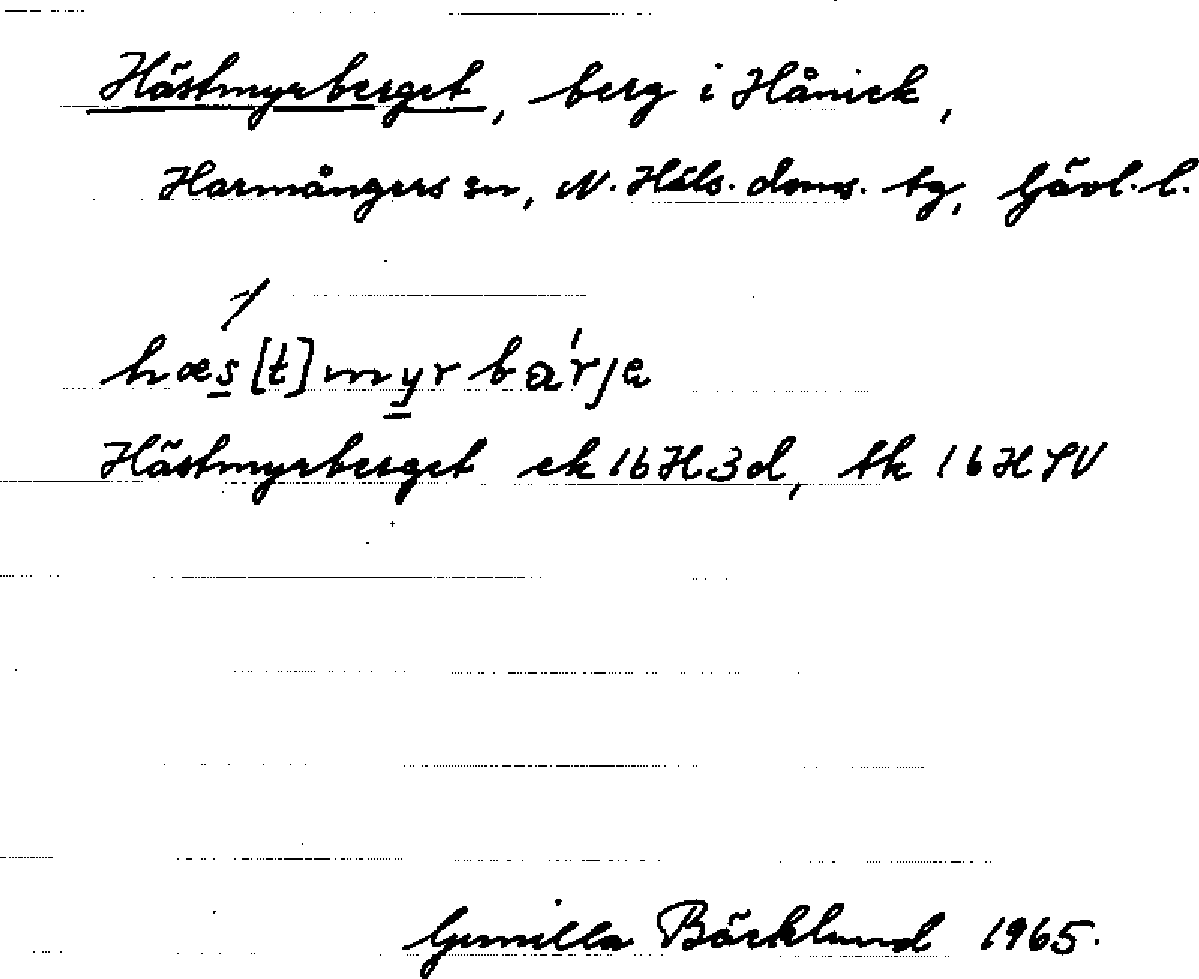 Hästmyrberget, berg i Hånick,
Harmångers sn, N. Häls. doms. tg, Gävl. l.
hæs[t]myrbárjə
Hästmyrberget ek 16H3d, tk 16HSV
Gunilla Bäcklund 1965.